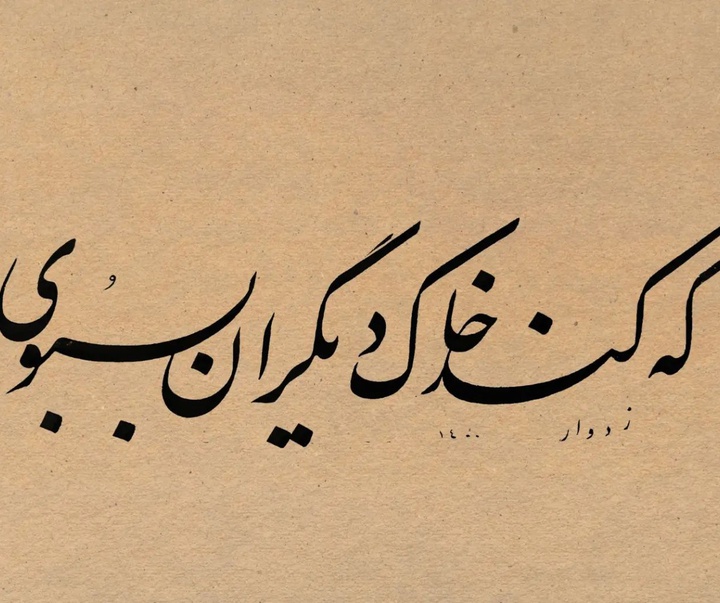 که کند خاک دیگران بسبوی
زدوار ۱۴۰۰